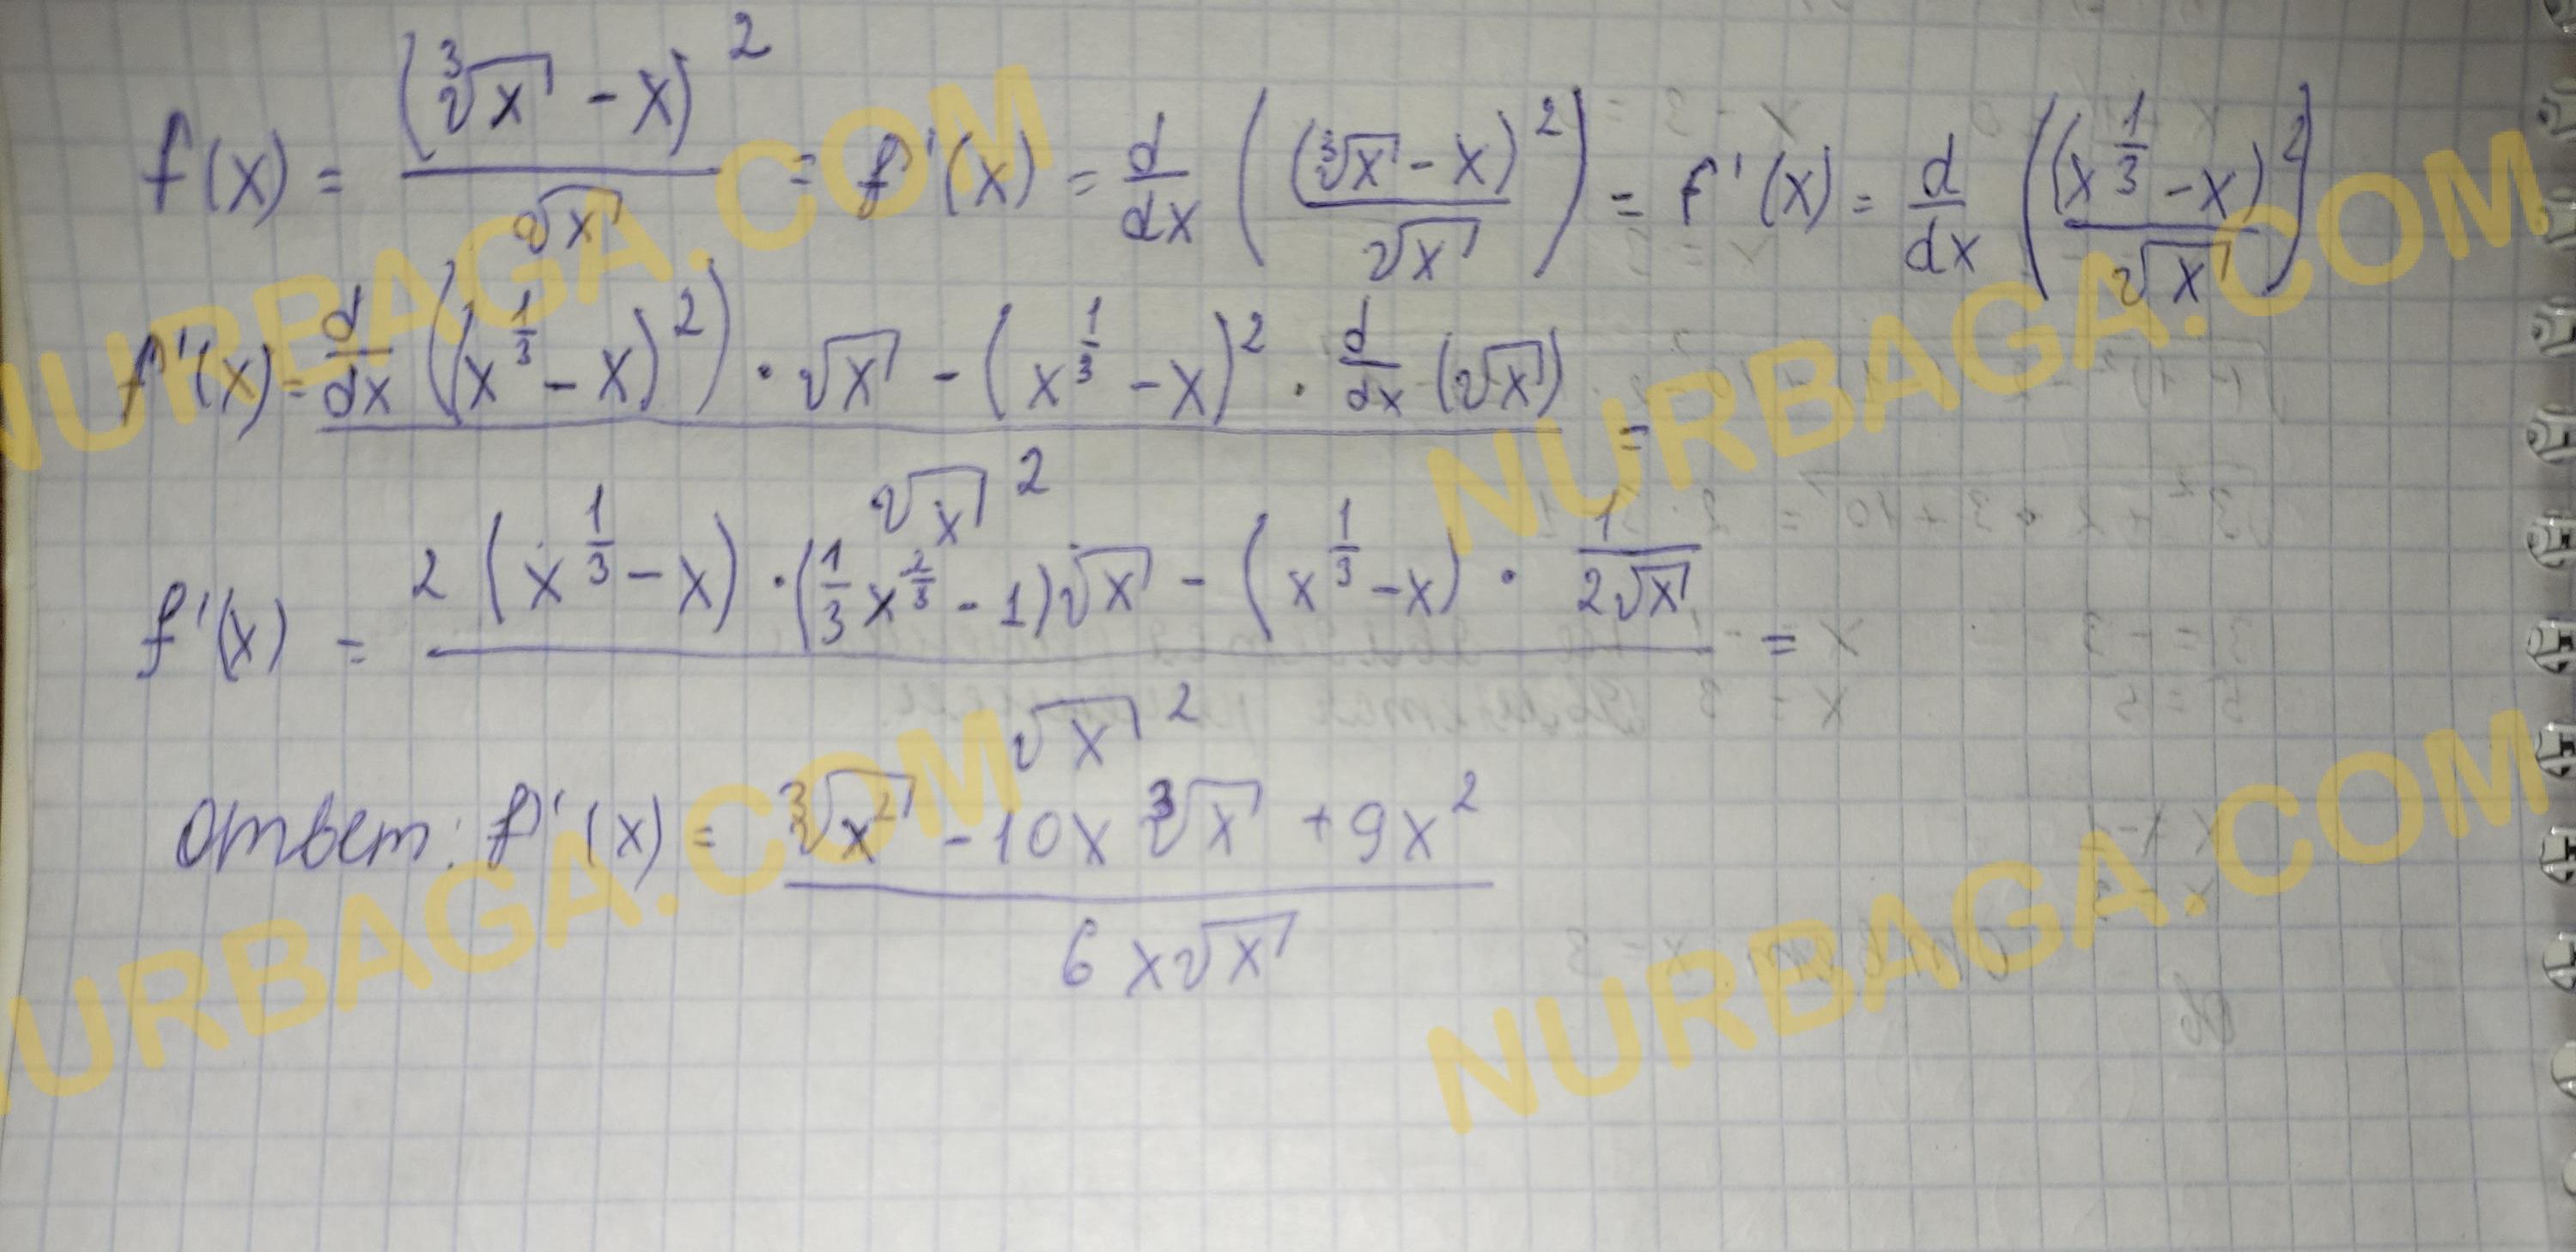 f(x) = (∛x - x)² / √x = f'(x) = d/dx ((∛x - x)² / √x) = f'(x) = d/dx ((x^(1/3) - x)² / √x)
f'(x) = (d/dx ((x^(1/3) - x)²) · √x - (x^(1/3) - x)² · d/dx (√x)) / √x² =
f'(x) = (2 (x^(1/3) - x) · (1/3 x^(2/3) - 1)√x - (x^(1/3) - x) · 1/(2√x)) / √x² =
ответ: f'(x) = (∛x² - 10x ∛x + 9x²) / (6x√x)
NURBAGA.COM
NURBAGA.COM
NURBAGA.COM
NURBAGA.COM